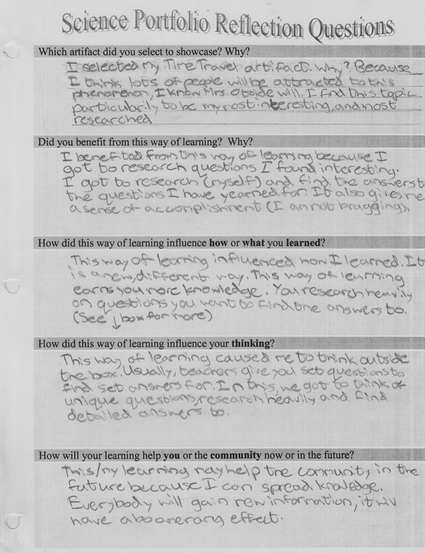 Science Portfolio Reflection Questions
Which artifact did you select to showcase? Why?
I selected my Time Travel artifact. Why? Because
I think lots of people will be attracted to this
phenomenon, I know Mrs. will. I find this topic
particularily to be my most interesting, and most
researched.
Did you benefit from this way of learning? Why?
I benefited from this way of learning because I
got to research questions I found interesting.
I got to research (myself) and find the answers to
the questions I have yearned for. It also gives me
a sense of accomplishment (I am not bragging).
How did this way of learning influence how or what you learned?
This way of learning influenced how I learned. It
is a new, different way. This way of learning
earns you more knowledge. You research heavily
on questions you want to find the answers to.
(See ↓ box for more)
How did this way of learning influence your thinking?
This way of learning caused me to think outside
the box. Usually, teachers give you set questions to
find set answers for. In this, we got to think of
unique questions, research heavily and find
detailed answers to.
How will your learning help you or the community now or in the future?
This/my learning may help the community, in the
future because I can spread knowledge.
Everybody will gain new information, it will
have a boomerang effect.